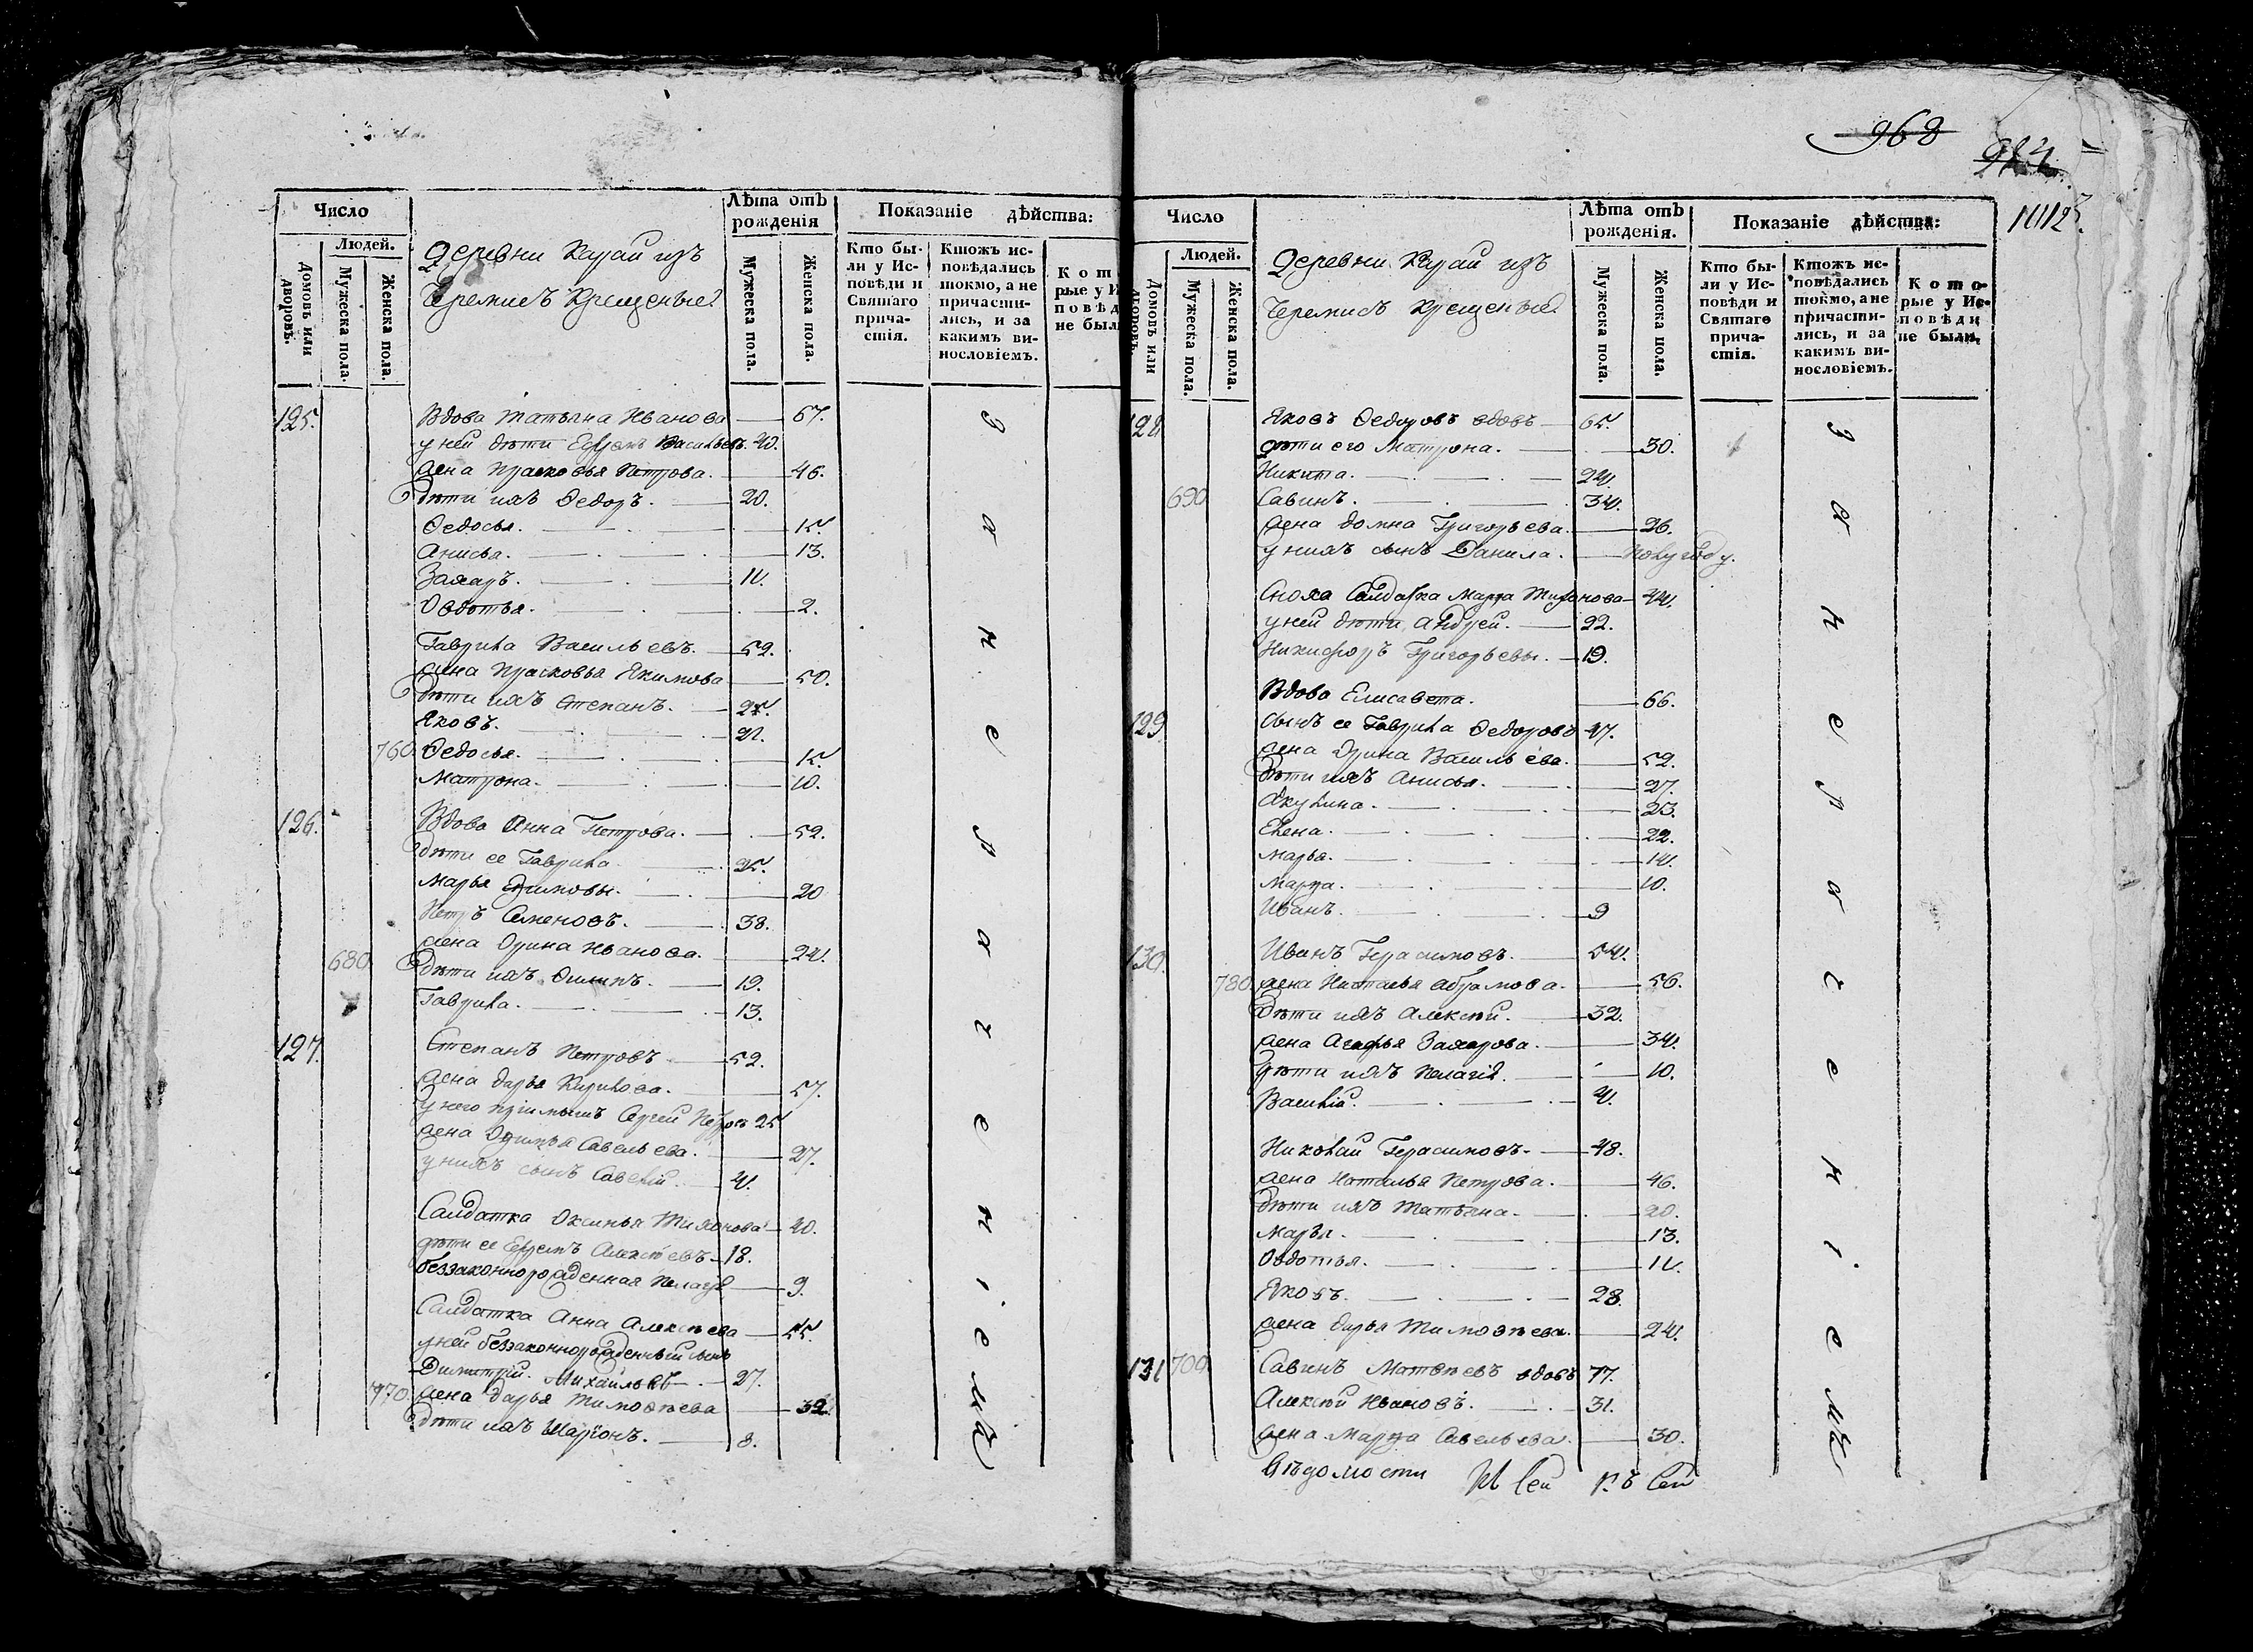 968
984
1112
Число
Людей.
Домовъ или дворовъ.
Мужеска пола.
Женска пола.
Деревни Карай изъ
Черемисъ Крещеные
Лѣта отъ рожденія
Мужеска пола.
Женска пола.
Показаніе дѣйства:
Кто бы-
ли у Ис-
повѣди и
Святаго
прича-
стія.
Ктожъ ис-
повѣдались
токмо, а не
причасти-
лись, и за
какимъ ви-
нословіемъ.
Кот
рые у И
повѣд
не был
125. Вдова Татьяна Иванова 67.
у ней дѣти Ефремъ Васильевъ. 40.
жена Прасковья Петрова. 46.
дѣти ихъ Ѳедоръ. 20.
Ѳедосья. 15.
Анисья. 13.
Захаръ. 11.
Овдотья. 2.
Гаврила Васильевъ. 52.
жена Прасковья Якимова 50.
дѣти ихъ Степанъ. 25.
Яковъ. 21.
760. Ѳедосья. 15.
Матрона. 10.
126. Вдова Анна Петрова. 52.
дѣти ее Гаврила. 25.
Марья Ефимовы. 20
Петръ Семеновъ. 38.
жена Орина Иванова. 24.
680. дѣти ихъ Филипъ. 19.
Гаврила. 13.
127. Степанъ Петровъ 52.
жена Дарья Кирилова. 57.
у него пріимышъ Сергей Петровъ 25
жена Офимья Савельева. 27.
у нихъ сынъ Савелій. 4.
Салдатка Оксинья Тихонова 40.
дѣти ее Ефремъ Алексѣевъ 18.
беззаконнорожденная Пелагея 9.
Салдатка Анна Алексѣева 55.
у ней беззаконнорожденный сынъ
Димитрій. Михайловъ 27.
770. жена Дарья Тимоѳѣева 32.
дѣти ихъ Иларіонъ. 8.
за нерачениемъ
Число
Людей.
Домовъ или дворовъ.
Мужеска пола.
Женска пола.
Деревни Карай изъ
Черемисъ Крещеные
Лѣта отъ рожденія.
Мужеска пола.
Женска пола.
Показаніе дѣйства:
Кто бы-
ли у Ис-
повѣди и
Святаго
прича-
стія.
Ктожъ ис-
повѣдались
токмо, а не
причасти-
лись, и за
какимъ ви-
нословіемъ.
Кото-
рые у Ис-
повѣди
не были.
128 Яковъ Ѳедоровъ вдовъ 65.
дѣти его Матрона. 30.
Никита. 24.
690 Савинъ. 34.
жена Домна Григорьева. 26.
у нихъ сынъ Данила. полугоду.
Сноха Салдатка Марѳа Тихонова 44.
у ней дѣти Андрей. 22.
Никифоръ Григорьевы. 19.
Вдова Елисавета. 66.
129 сынъ ее Гаврила Ѳедоровъ 47.
жена Орина Васильева. 52.
дѣти ихъ Анисья. 27.
Акулина. 23.
Елена. 22.
Марья. 14.
Марѳа. 10.
Иванъ. 9
130. Иванъ Герасимовъ. 54.
780. жена Наталья Абрамова. 56.
дѣти ихъ Алексѣй. 32.
жена Агафья Захарова. 34.
дѣти ихъ Пелагія. 10.
Василій. 4.
Николай Герасимовъ. 48.
жена Наталья Петрова. 46.
дѣти ихъ Татьяна. 20.
Марья. 13.
Овдотья. 11.
Яковъ. 28.
жена Дарья Тимоѳѣева. 24.
131 700. Савинъ Матвѣевъ вдовъ 77.
Алексѣй Ивановъ. 31.
жена Марѳа Савельева. 30.
за нерачекіемъ
вѣдомости